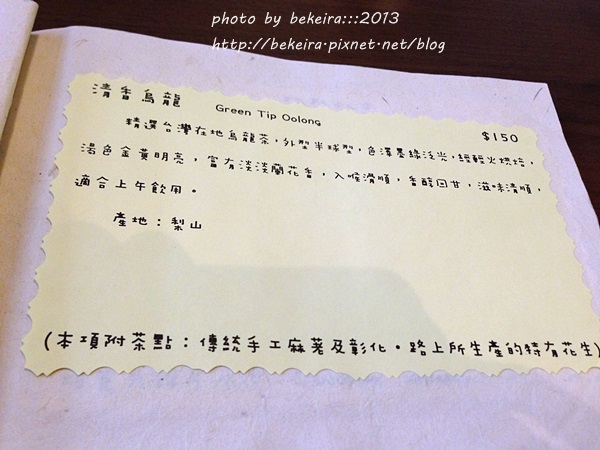 photo by bekeira:::2013
http://bekeira.pixnet.net/blog
清香烏龍
Green Tip Oolong
$150
精選台灣在地烏龍茶，外型半球型，色澤墨綠泛光，經輕火烘焙，
湯色金黃明亮，富有淡淡蘭花香，入喉滑順，香醇回甘，滋味清順，
適合上午飲用。
產地：梨山
(本項附茶點：傳統手工麻荖及彰化。路上所生產的特有花生)